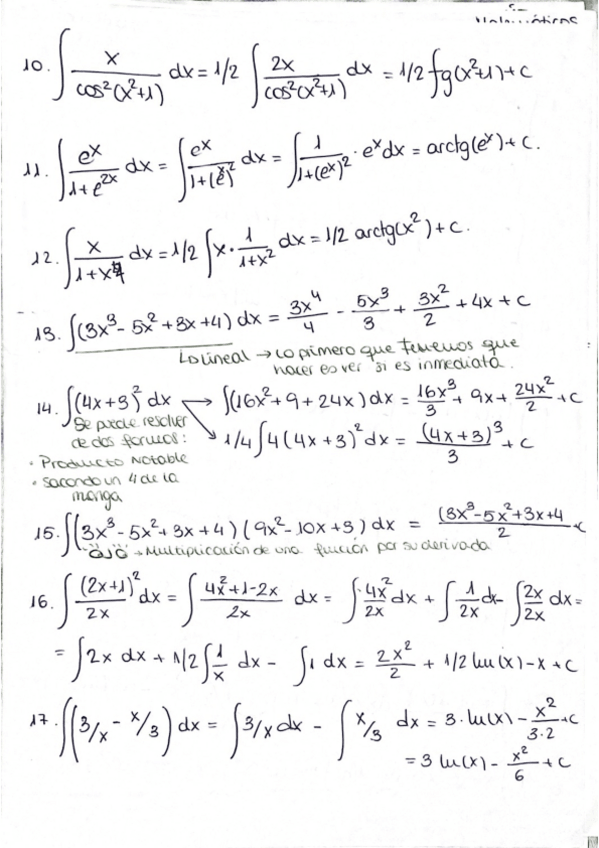 10. ∫ x / cos²(x²+1) dx = 1/2 ∫ 2x / cos²(x²+1) dx = 1/2 tg(x²+1) + C
11. ∫ eˣ / 1+e²ˣ dx = ∫ eˣ / 1+(eˣ)² dx = ∫ 1 / 1+(eˣ)² · eˣ dx = arctg(eˣ) + C.
12. ∫ x / 1+x⁴ dx = 1/2 ∫ x · 1 / 1+x² dx = 1/2 arctg(x²) + C.
13. ∫(3x³ - 5x² + 3x + 4) dx = 3x⁴/4 - 5x³/3 + 3x²/2 + 4x + C
↳ Lineal → Lo primero que tenemos que
hacer es ver si es inmediata.
14. ∫(4x+3)² dx → ∫(16x² + 9 + 24x) dx = 16x³/3 + 9x + 24x²/2 + C
Se puede resolver
de dos formas:
↘ 1/4 ∫ 4(4x+3)² dx = (4x+3)³/3 + C
· Producto Notable
· Sacando un 4 de la
manga
15. ∫(3x³ - 5x² + 3x + 4)(9x² - 10x + 3) dx = (3x³ - 5x² + 3x + 4 / 2 + C
OJO → Multiplicación de una función por su derivada
16. ∫ (2x+1)² / 2x dx = ∫ 4x² + 1 - 2x / 2x dx = ∫ 4x²/2x dx + ∫ 1/2x dx - ∫ 2x/2x dx =
= ∫ 2x dx + 1/2 ∫ 1/x dx - ∫ 1 dx = 2x²/2 + 1/2 ln(x) - x + C
17. ∫(3/x - x/3) dx = ∫ 3/x dx - ∫ x/3 dx = 3 · ln(x) - x²/3·2 + C
= 3 ln(x) - x²/6 + C